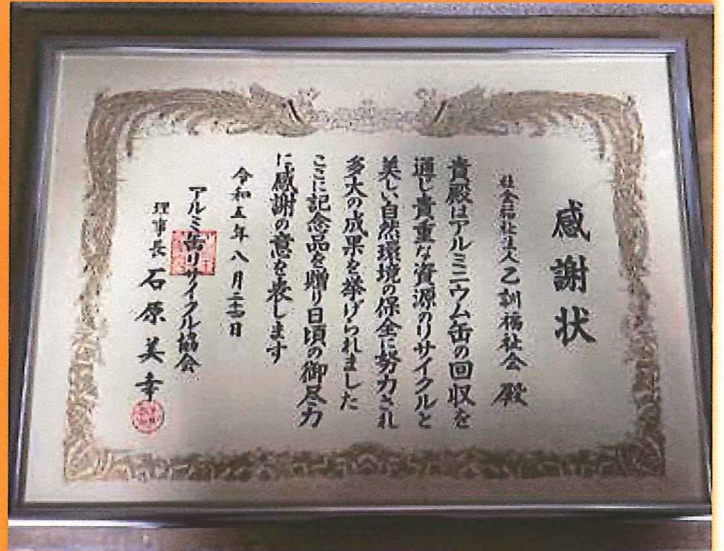 感謝状
社会福祉法人乙訓福祉会 殿
貴殿はアルミニウム缶の回収を
通じ貴重な資源のリサイクルと
美しい自然環境の保全に努力され
多大の成果を挙げられました
ここに記念品を贈り日頃の御尽力
に感謝の意を表します
令和五年八月二十四日
アルミ缶リサイクル協会
理事長 石原美幸